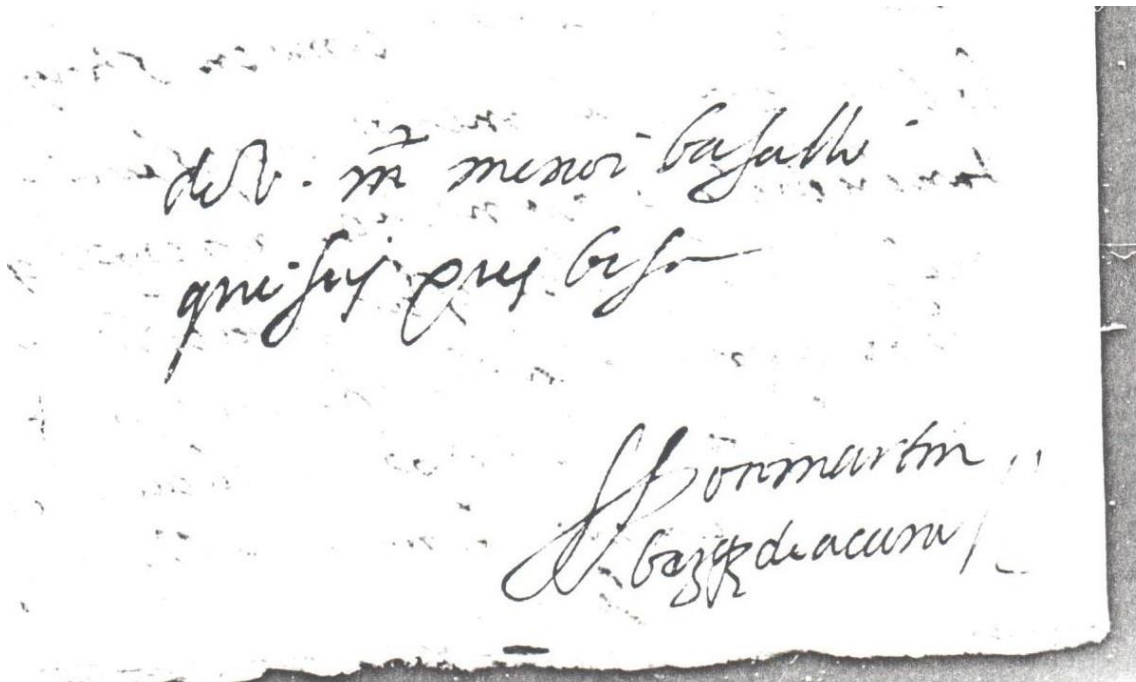 de V. mt menor basallo
que sus pies besa
Don martin
bazqz de acuna